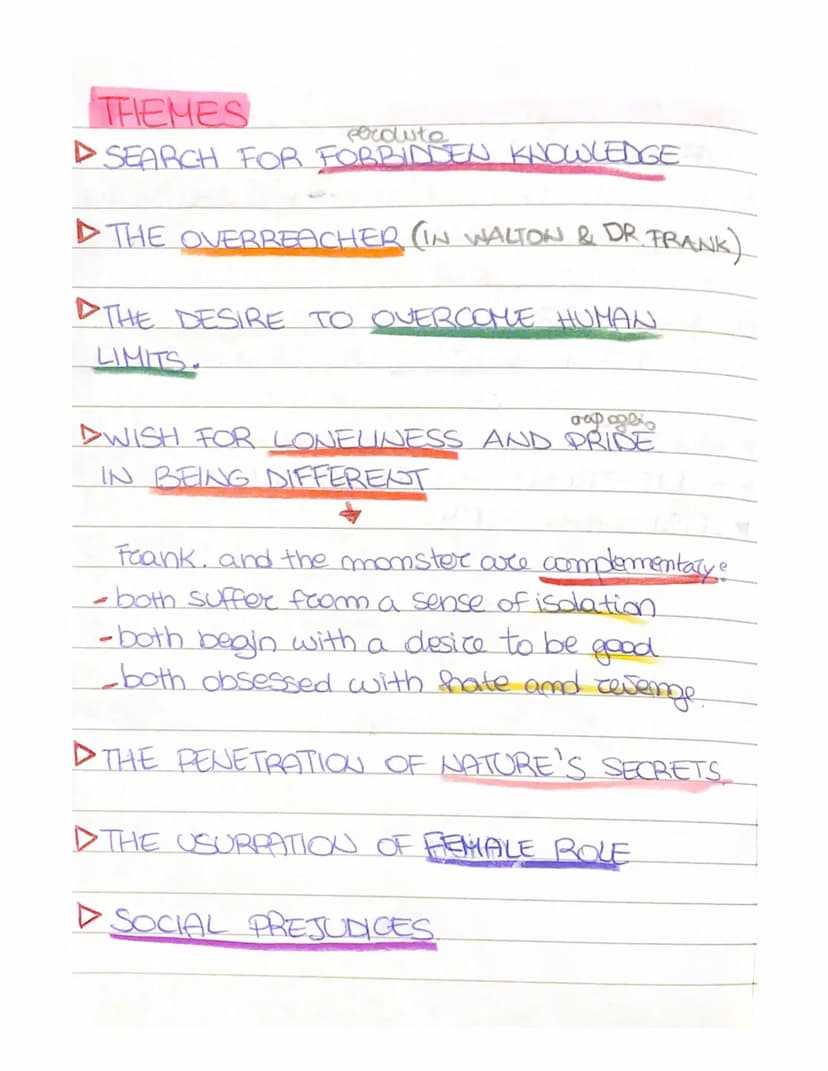 THEMES
perduta
▷ SEARCH FOR FORBIDDEN KNOWLEDGE
▷ THE OVERREACHER (IN WALTON & DR. FRANK)
▷ THE DESIRE TO OVERCOME HUMAN
LIMITS.
orgoglio
▷ WISH FOR LONELINESS AND PRIDE
IN BEING DIFFERENT
↓
Frank. and the monster are complementary:
- both suffer from a sense of isolation
- both begin with a desire to be good
- both obsessed with hate and revenge.
▷ THE PENETRATION OF NATURE'S SECRETS.
▷ THE USURPATION OF FEMALE ROLE
▷ SOCIAL PREJUDICES.